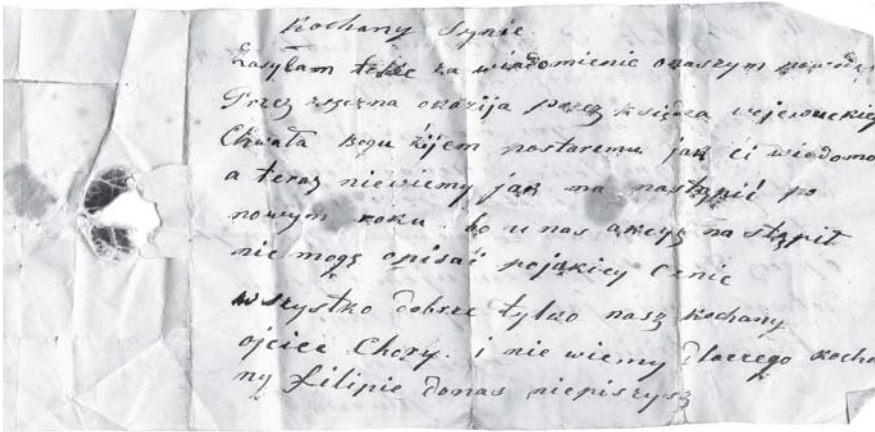 Kochany Synie
Zasyłam tobie za wiadomienie onaszym
Przez okazija przez księdza
Chwała Bogu żijem postaremu jak ci wiadomo
a teraz niewiemy jak ma nastąpić po
nowym roku. bo u nas akcyz nastąpił
nie mogę opisać pojakiey Cenie
wszystko dobrze tylko nasz kochany
ojciec Chory. i nie wiemy dlaczego kocha
ny Filipie donas niepiszysz